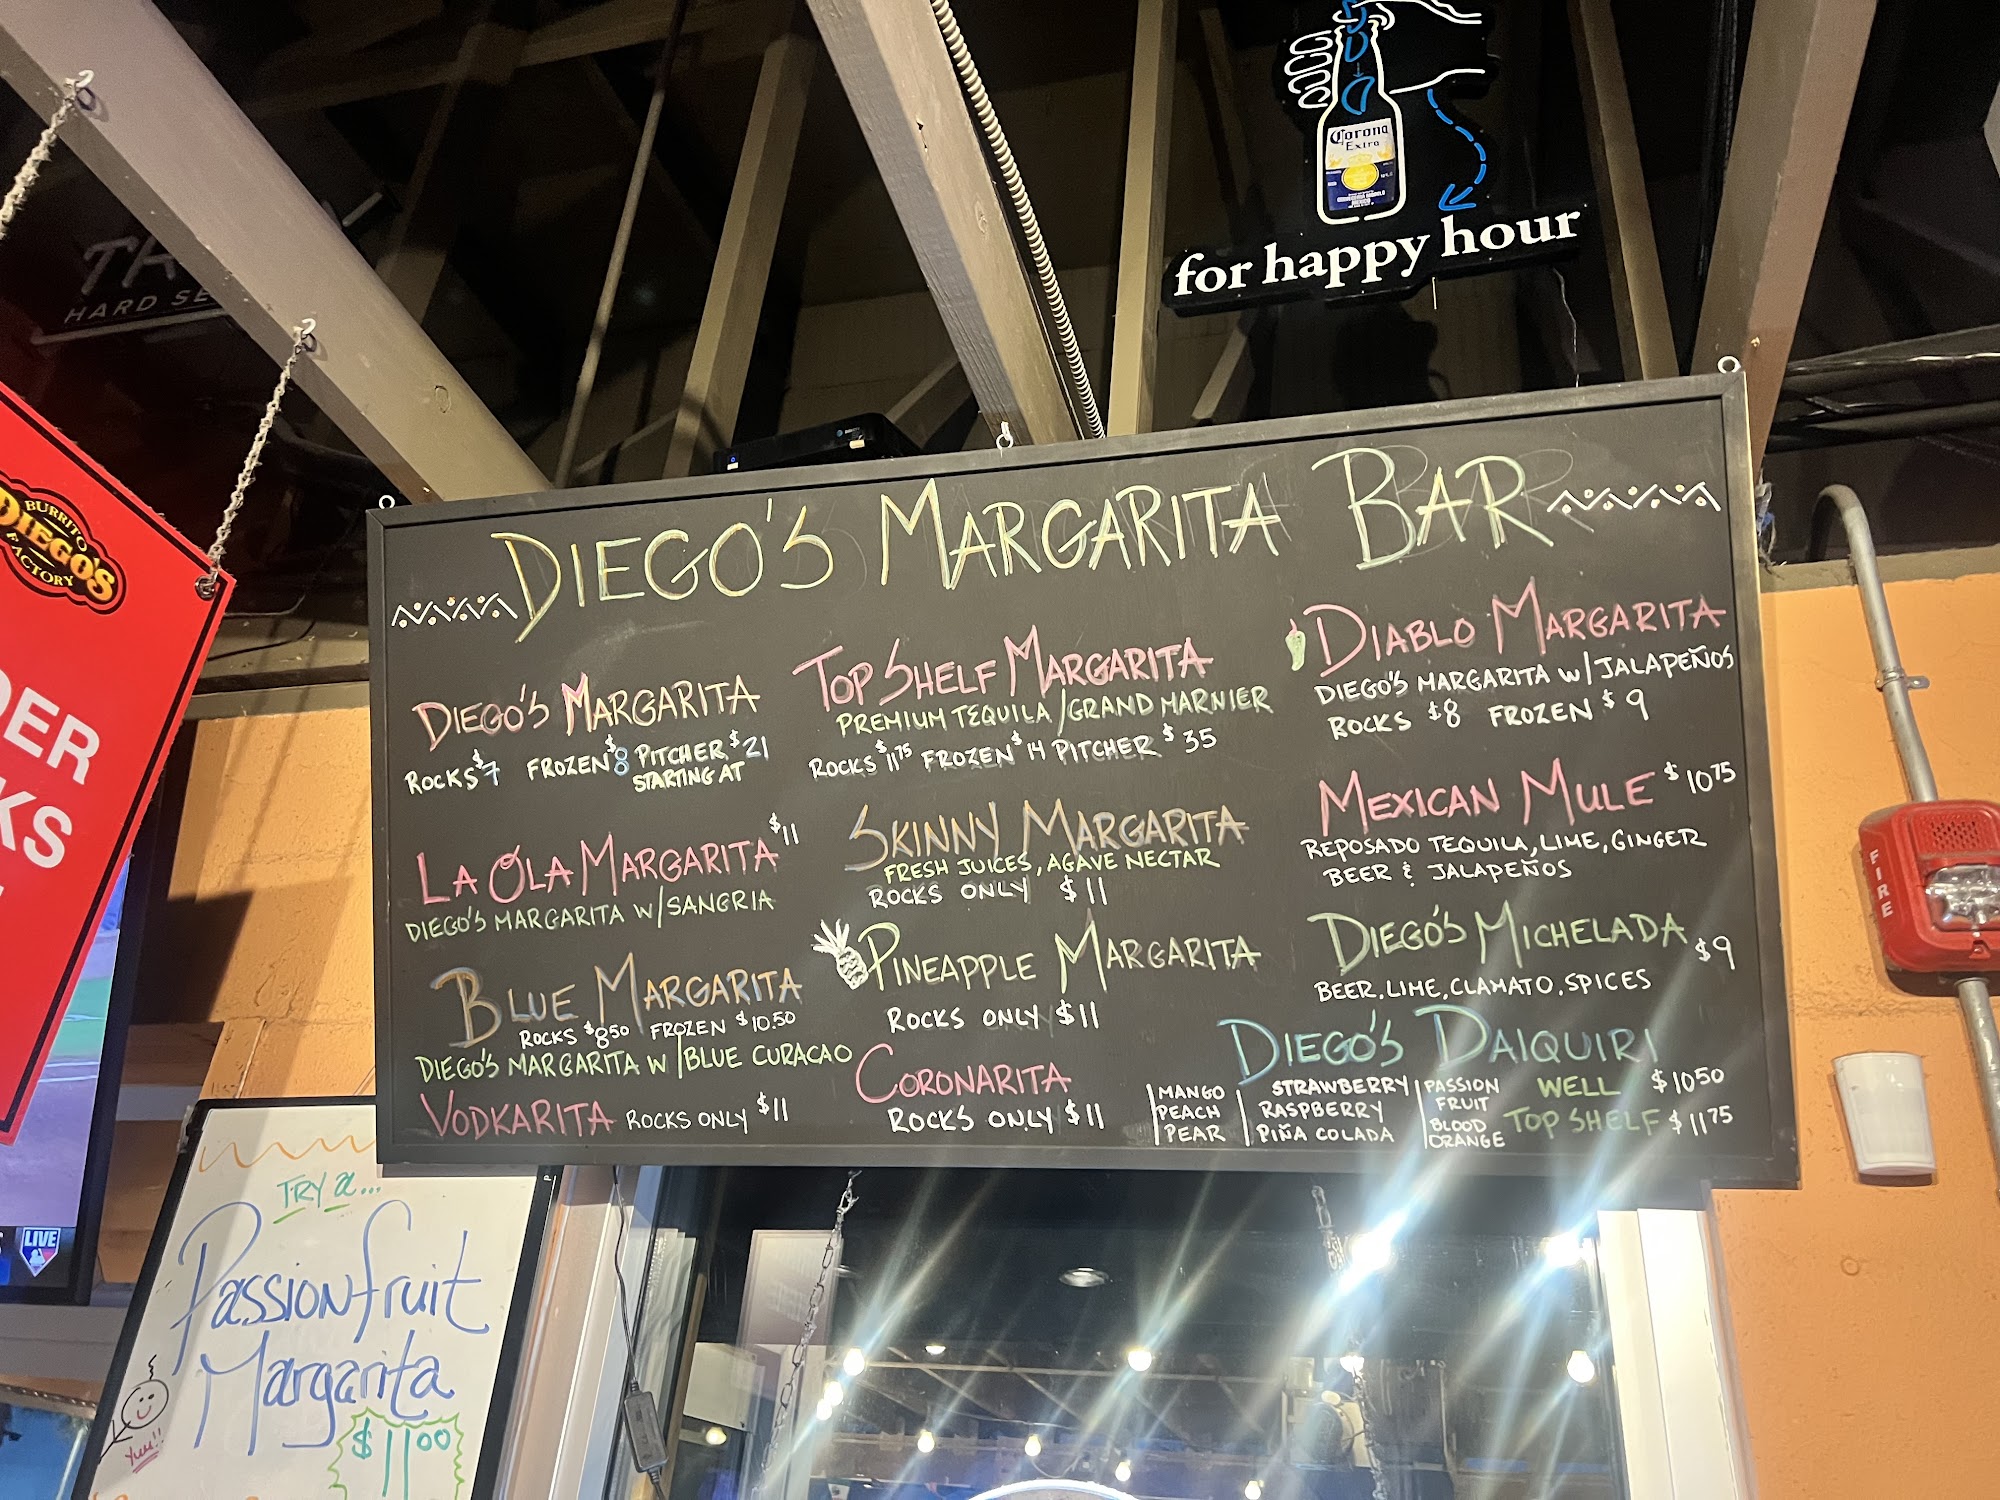 Corona
Extra
for happy hour
HARD SE
BURRITO
DIEGO'S
FACTORY
DER
KS
DIEGO'S MARGARITA BAR
DIEGO'S MARGARITA
ROCKS $7 FROZEN $8 PITCHER $21
STARTING AT
LA OLA MARGARITA $11
DIEGO'S MARGARITA W/SANGRIA
BLUE MARGARITA
ROCKS $8.50 FROZEN $10.50
DIEGO'S MARGARITA W/BLUE CURACAO
VODKARITA ROCKS ONLY $11
TOP SHELF MARGARITA
PREMIUM TEQUILA/GRAND MARNIER
ROCKS $11.75 FROZEN $14 PITCHER $35
SKINNY MARGARITA
FRESH JUICES, AGAVE NECTAR
ROCKS ONLY $11
PINEAPPLE MARGARITA
ROCKS ONLY $11
CORONARITA
ROCKS ONLY $11
DIABLO MARGARITA
DIEGO'S MARGARITA W/JALAPEÑOS
ROCKS $8 FROZEN $9
MEXICAN MULE $10.75
REPOSADO TEQUILA, LIME, GINGER
BEER & JALAPEÑOS
DIEGO'S MICHELADA $9
BEER, LIME, CLAMATO, SPICES
DIEGO'S DAIQUIRI
MANGO
PEACH
PEAR
STRAWBERRY
RASPBERRY
PIÑA COLADA
PASSION
FRUIT
BLOOD
ORANGE
WELL $10.50
TOP SHELF $11.75
FIRE
LIVE
TRY a...
Passionfruit
Margarita
$11.00
YUM!!